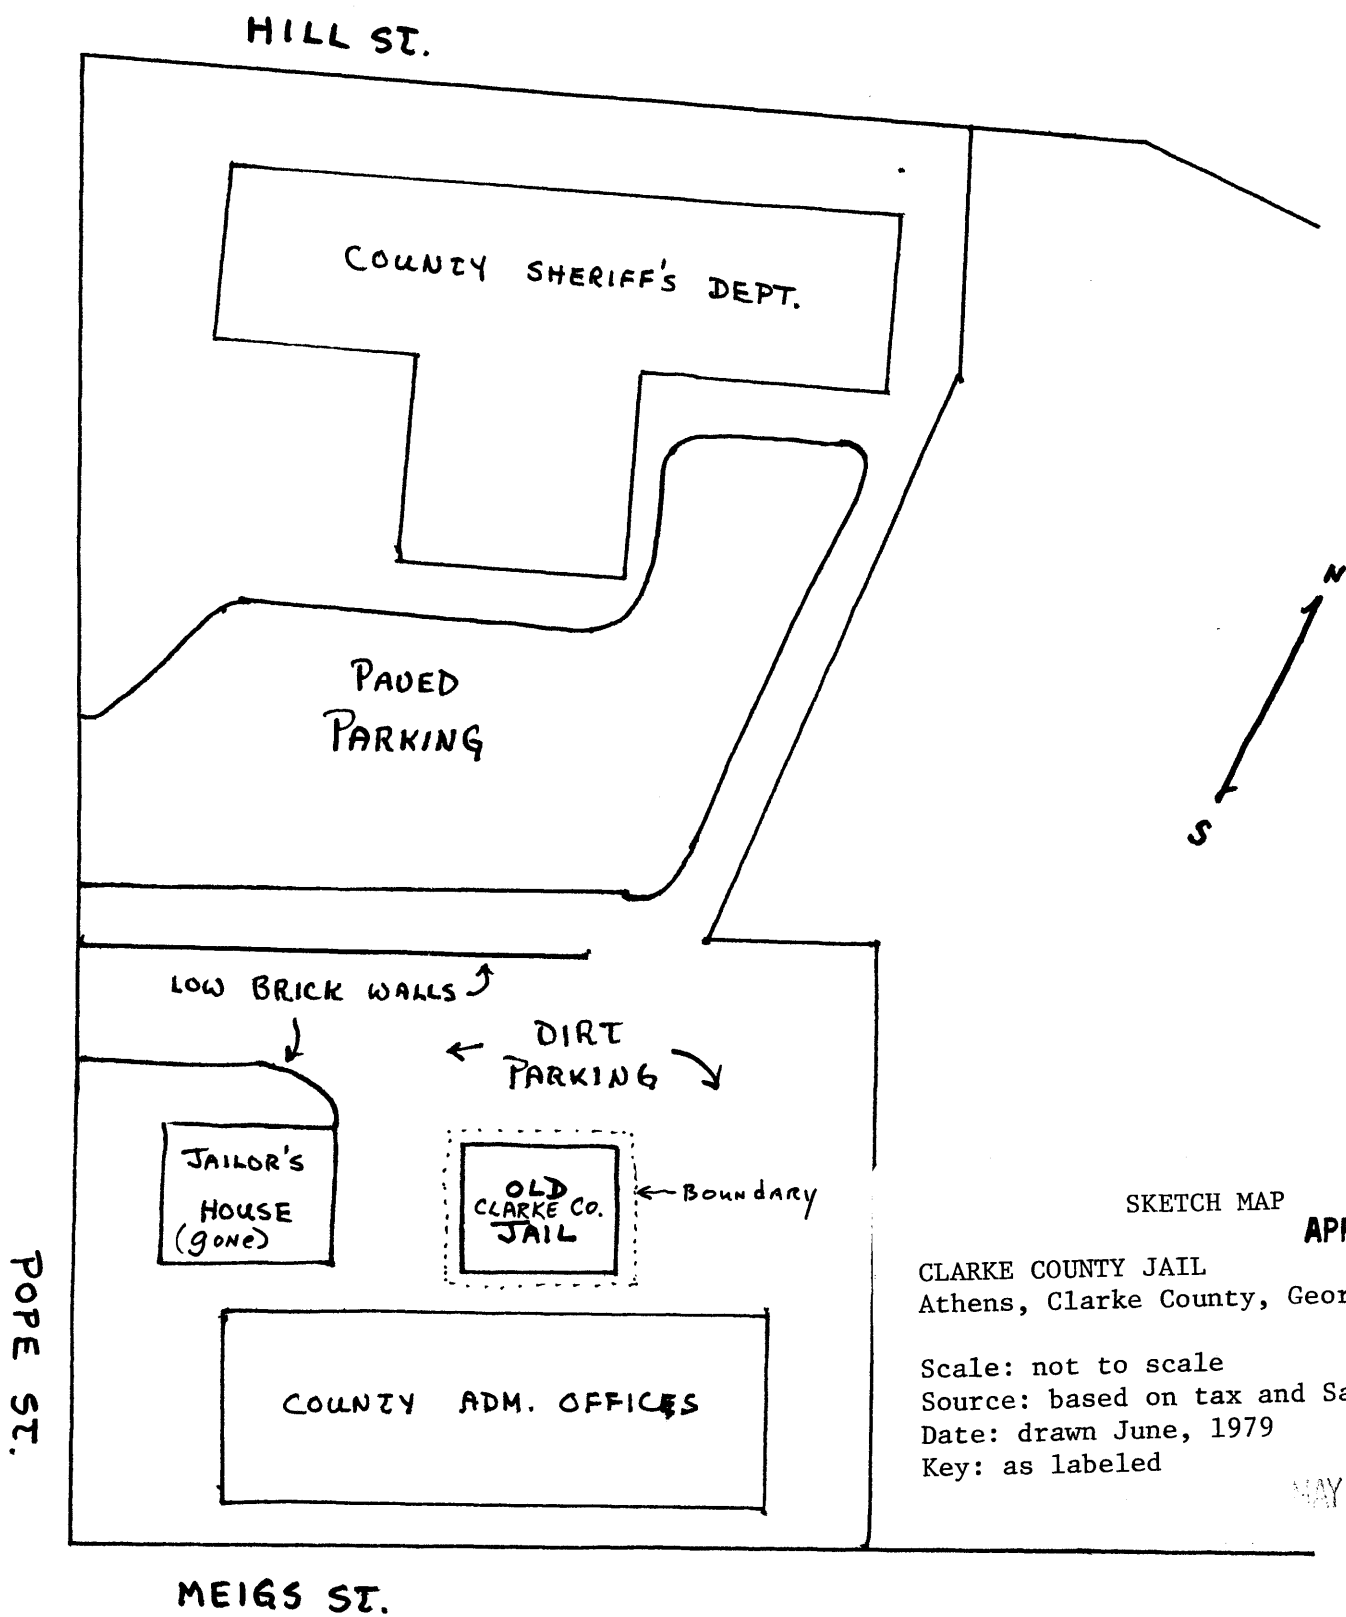 HILL ST.
COUNTY SHERIFF'S DEPT.
N
S
PAVED
PARKING
LOW BRICK WALLS
DIRT
PARKING
JAILOR'S
HOUSE
(gone)
OLD
CLARKE CO.
JAIL
BOUNDARY
COUNTY ADM. OFFICES
POPE ST.
MEIGS ST.
SKETCH MAP
CLARKE COUNTY JAIL
Athens, Clarke County, Geor
Scale: not to scale
Source: based on tax and Sa
Date: drawn June, 1979
Key: as labeled
MAY